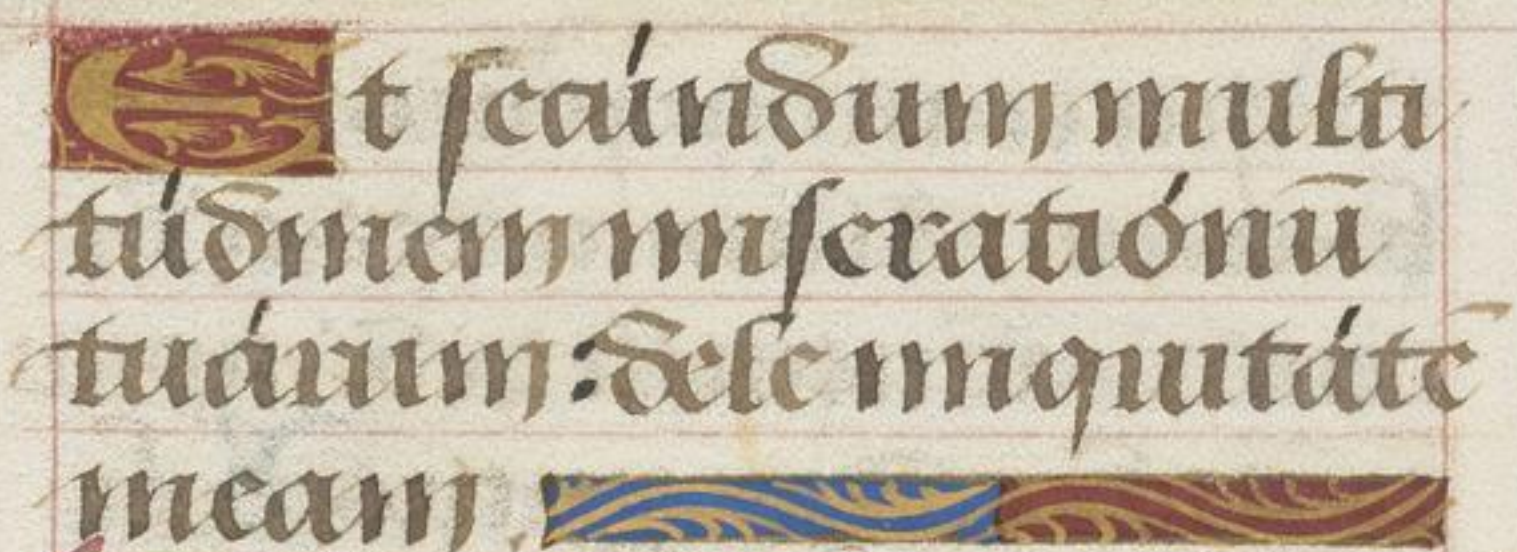 Et ſecúndum multi
túdinem miſeratiónū
tuárum : dele iniquitátē
meam .